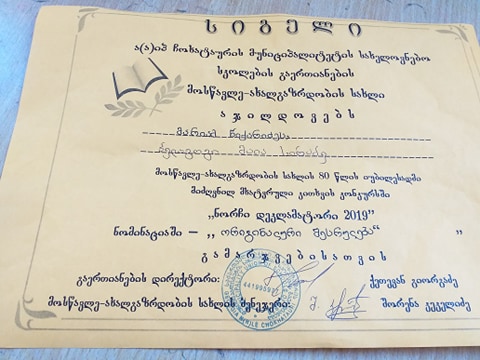 სიგელი
ა(ა)იპ ჩოხატაურის მუნიციპალიტეტის სახელოვნებო
სკოლების გაერთიანების
მოსწავლე-ახალგაზრდობის სახლი
აჯილდოვებს
მარიამ
მაია
მოსწავლე-ახალგაზრდობის სახლის 80 წლის იუბილესადმი
მიძღვნილ მხატვრული კითხვის კონკურსში
„ნორჩი დეკლამატორი 2019”
ნომინაციაში – „ ორიგინალური შესრულება “ ”
გამარჯვებისათვის
გაერთიანების დირექტორი: ქეთევან გიორგაძე
მოსწავლე-ახალგაზრდობის სახლის მენეჯერი: შორენა კეკელიძე